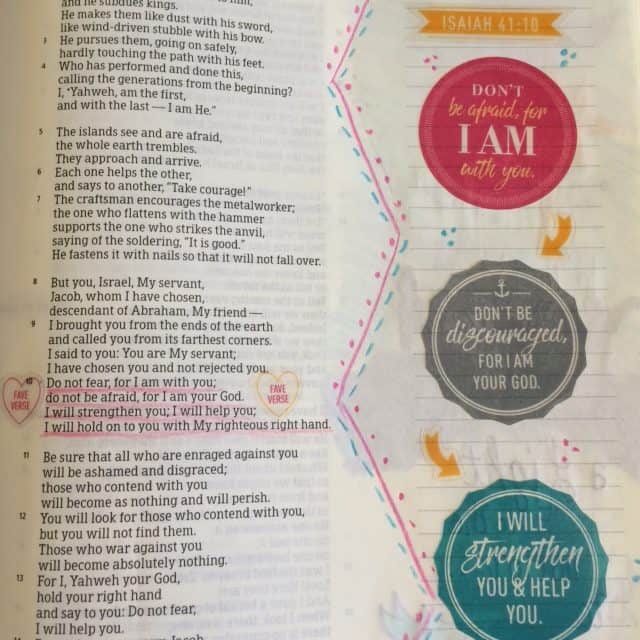 and he subdues kings.
He makes them like dust with his sword,
like wind-driven stubble with his bow.
3 He pursues them, going on safely,
hardly touching the path with his feet.
4 Who has performed and done this,
calling the generations from the beginning?
I, Yahweh, am the first,
and with the last — I am He."
5 The islands see and are afraid,
the whole earth trembles.
They approach and arrive.
6 Each one helps the other,
and says to another, "Take courage!"
7 The craftsman encourages the metalworker;
the one who flattens with the hammer
supports the one who strikes the anvil,
saying of the soldering, "It is good."
He fastens it with nails so that it will not fall over.
8 But you, Israel, My servant,
Jacob, whom I have chosen,
descendant of Abraham, My friend —
9 I brought you from the ends of the earth
and called you from its farthest corners.
I said to you: You are My servant;
I have chosen you and not rejected you.
10 Do not fear, for I am with you;
do not be afraid, for I am your God.
I will strengthen you; I will help you;
I will hold on to you with My righteous right hand.
FAVE
VERSE
FAVE
VERSE
11 Be sure that all who are enraged against you
will be ashamed and disgraced;
those who contend with you
will become as nothing and will perish.
12 You will look for those who contend with you,
but you will not find them.
Those who war against you
will become absolutely nothing.
13 For I, Yahweh your God,
hold your right hand
and say to you: Do not fear,
I will help you.
ISAIAH 41-10
DON'T
be afraid, for
I AM
with you.
DON'T BE
discouraged,
FOR I AM
YOUR GOD.
I WILL
strengthen
YOU & HELP
YOU.